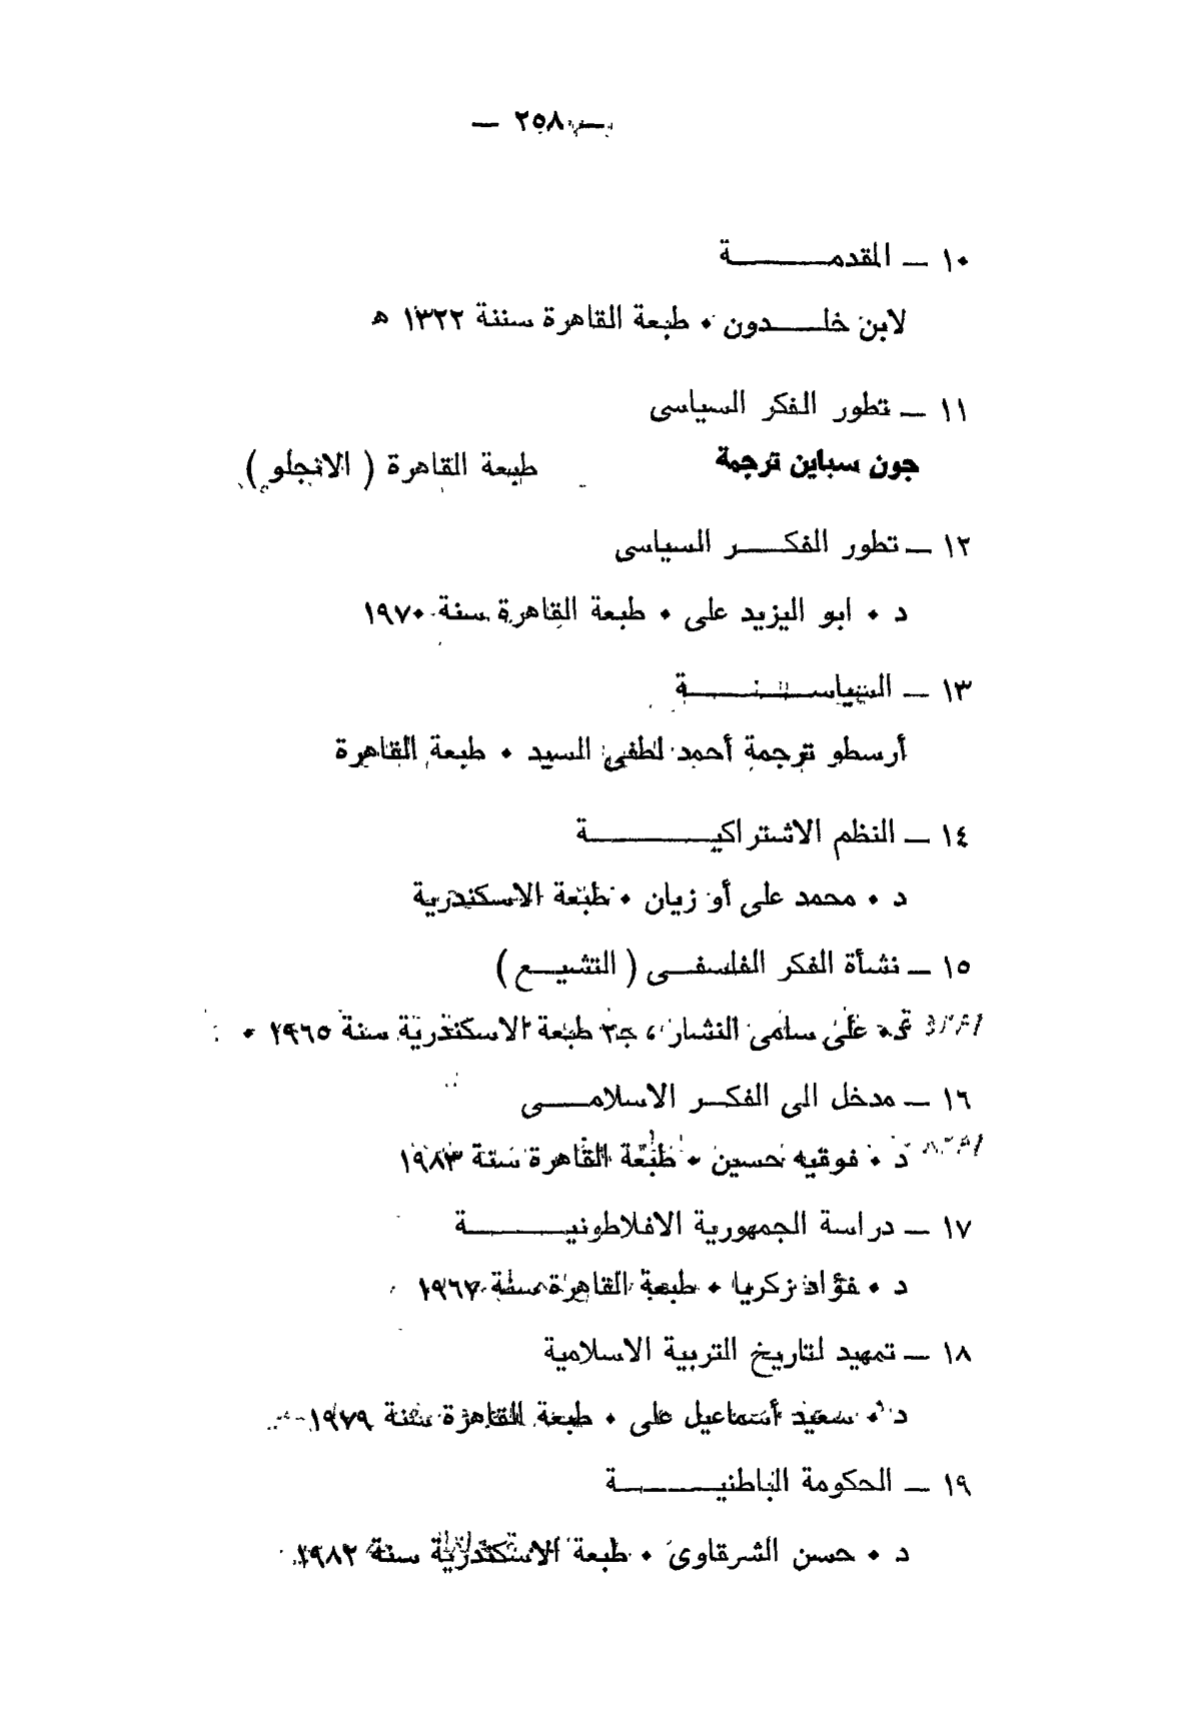 — ٢٥٨ —
١٠ — المقدمة
لابن خلدون • طبعة القاهرة سننة ١٣٢٢ ه
١١ — تطور الفكر السياسى
جون سباين ترجمة طبعة القاهرة ( الانجلو )
١٢ — تطور الفكر السياسى
د • ابو اليزيد على • طبعة القاهرة سنة ١٩٧٠
١٣ — السياسة
أرسطو ترجمة أحمد لطفى السيد • طبعة القاهرة
١٤ — النظم الاشتراكية
د • محمد على أو زيان • طبعة الاسكندرية
١٥ — نشأة الفكر الفلسفى ( التشيع )
على سامى النشار ، ج٢ طبعة الاسكندرية سنة ١٩٦٥ •
١٦ — مدخل الى الفكر الاسلامى
د • فوقيه حسين • طبعة القاهرة سنة ١٩٨٣
١٧ — دراسة الجمهورية الافلاطونية
د • فؤاد زكريا • طبعة القاهرة سنة ١٩٦٧
١٨ — تمهيد لتاريخ التربية الاسلامية
د • سعيد أسماعيل على • طبعة القاهرة سنة ١٩٧٩
١٩ — الحكومة الباطنية
د • حسن الشرقاوى • طبعة الاسكندرية سنة ١٩٨٢